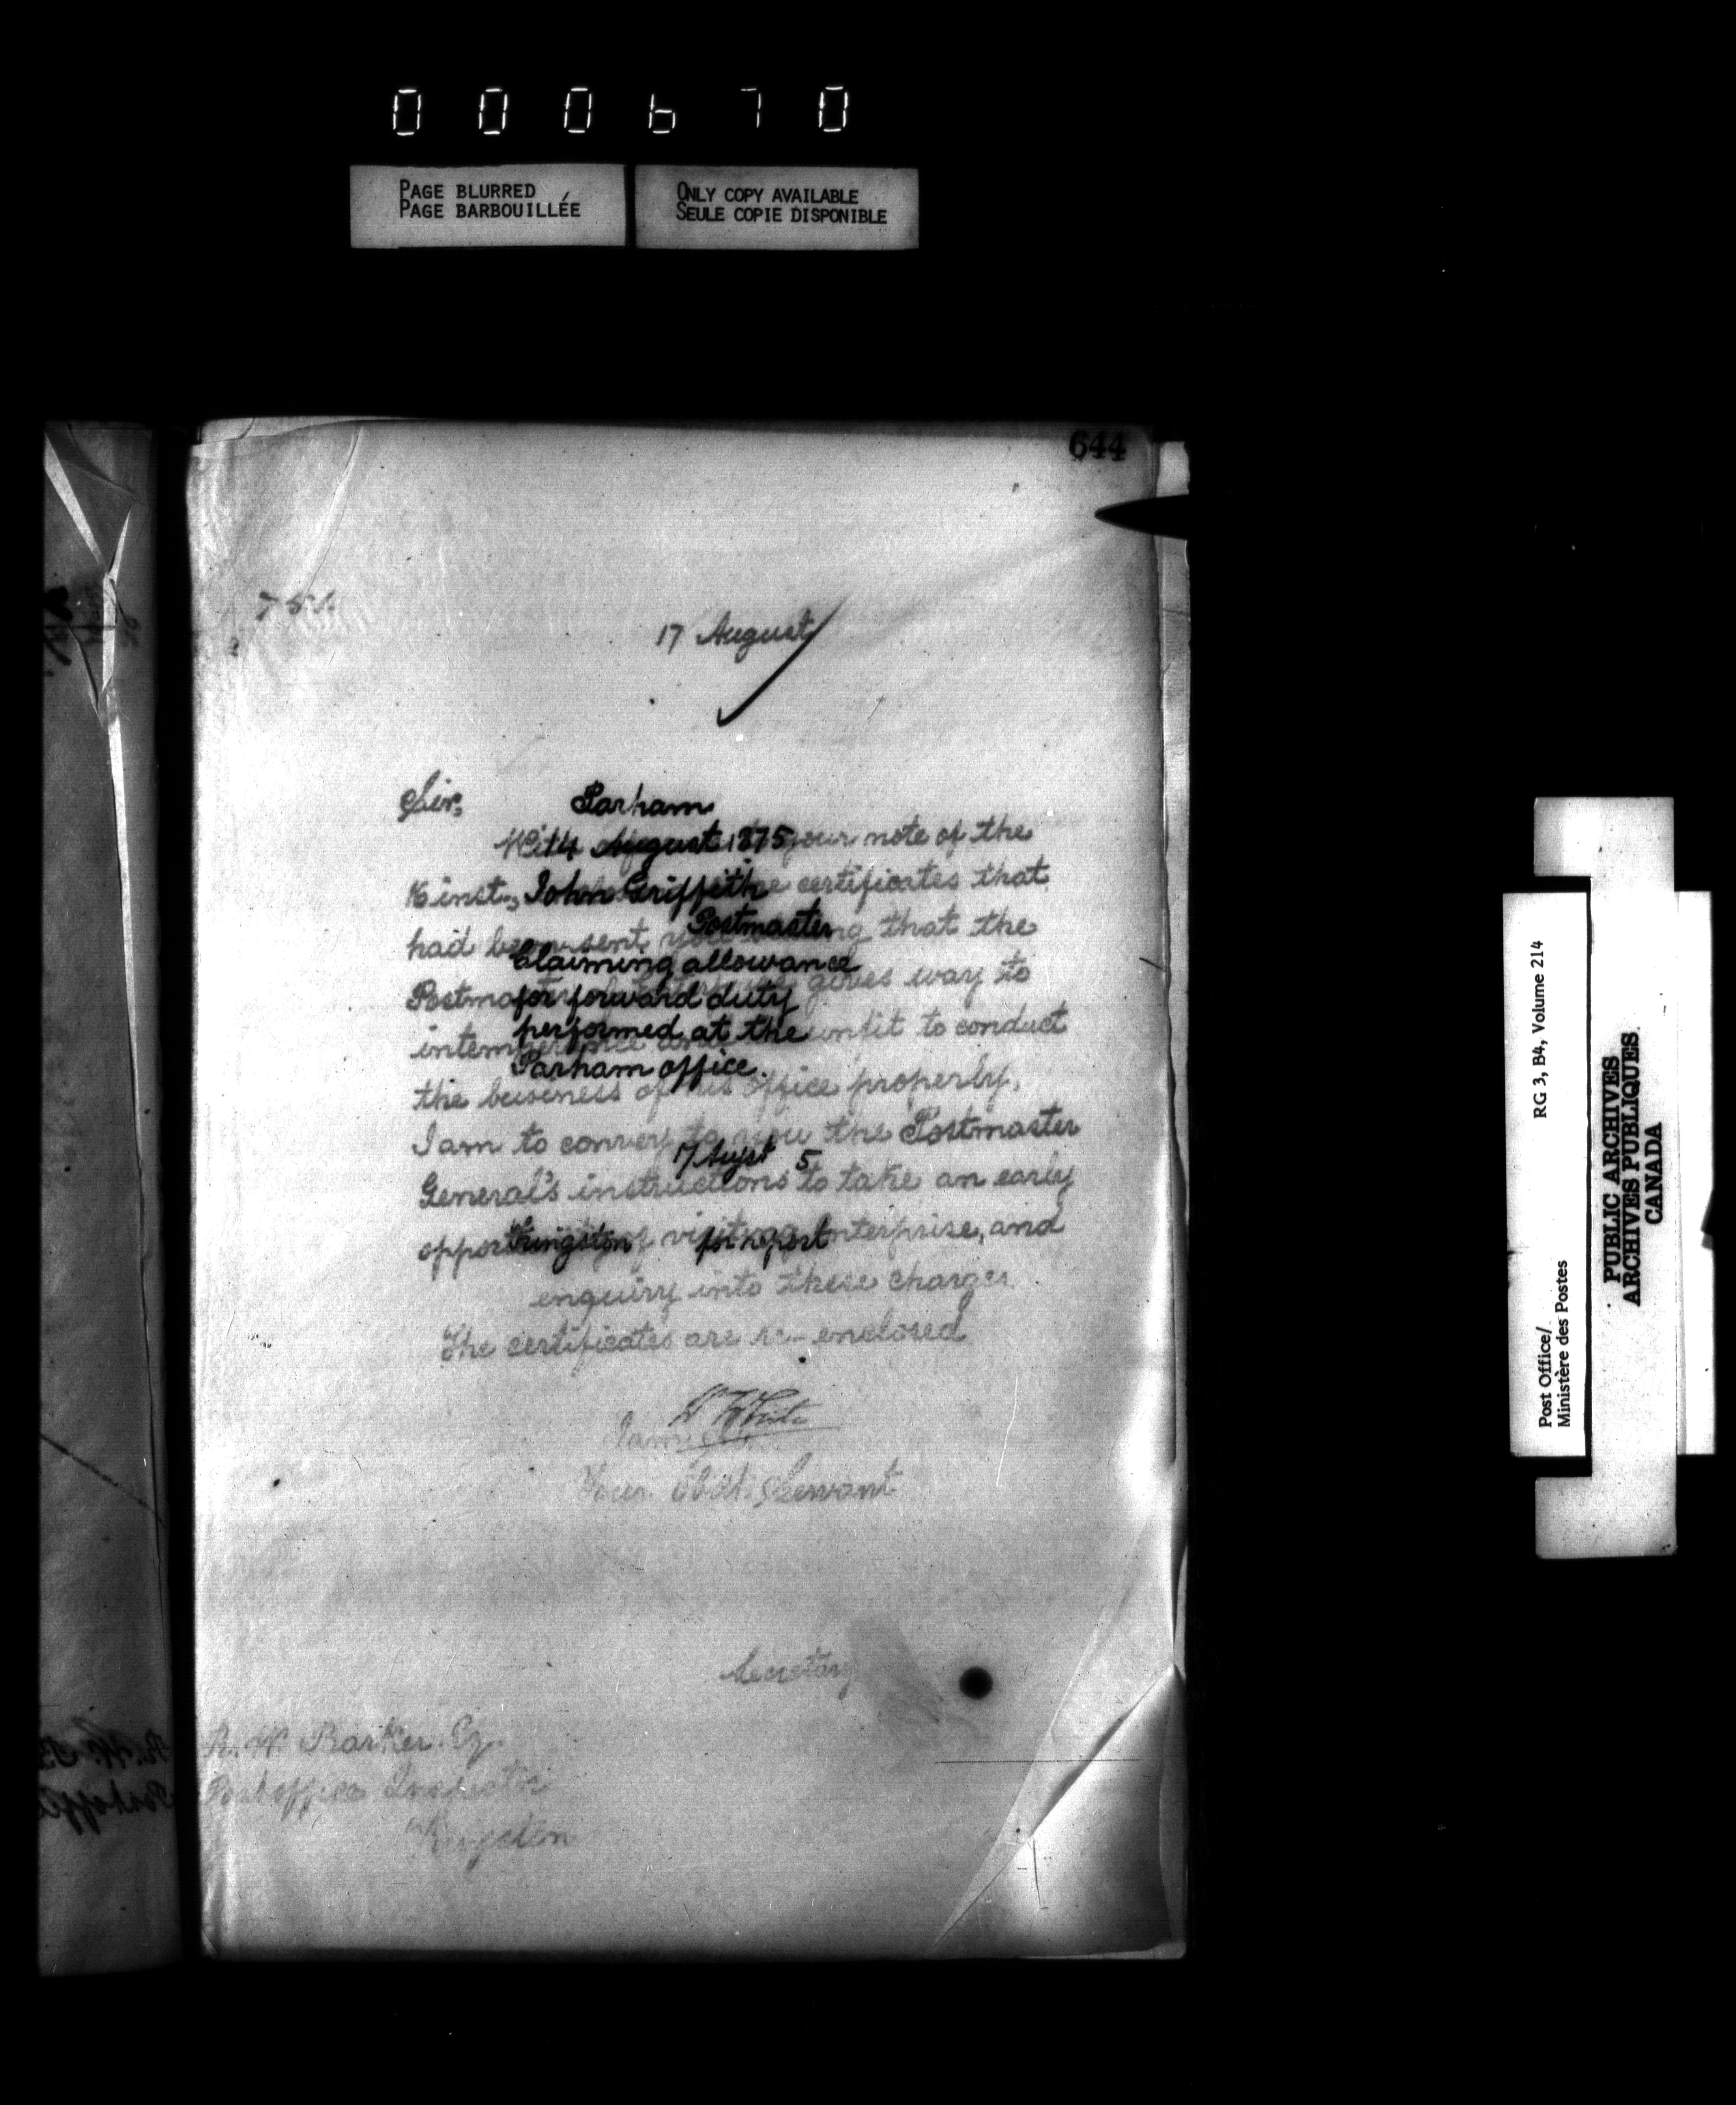 000670
PAGE BLURRED
PAGE BARBOUILLÉE
ONLY COPY AVAILABLE
SEULE COPIE DISPONIBLE
644
17 August
Sir,
Parham
14 August 1875
your note of the
inst., certificates that
John Griffith
Postmaster
had been sent you that the
Claiming allowance
Postmaster gives way to
for forward duty
performed at the
intemperance unfit to conduct
Parham office.
the business of his office properly,
I am to convey to you the Postmaster
17 Augst 5
General's instructions to take an early
opportunity of visiting Enterprise, and
Kingston for report
enquiry into these charges.
The certificates are re-enclosed
W White
I am, Sir
Your Obdt. Servant
Secretary
R. W. Barker Eq.
Post office Inspector
Kingston
Post Office/
Ministère des Postes
RG 3, B4, Volume 214
PUBLIC ARCHIVES
ARCHIVES PUBLIQUES
CANADA